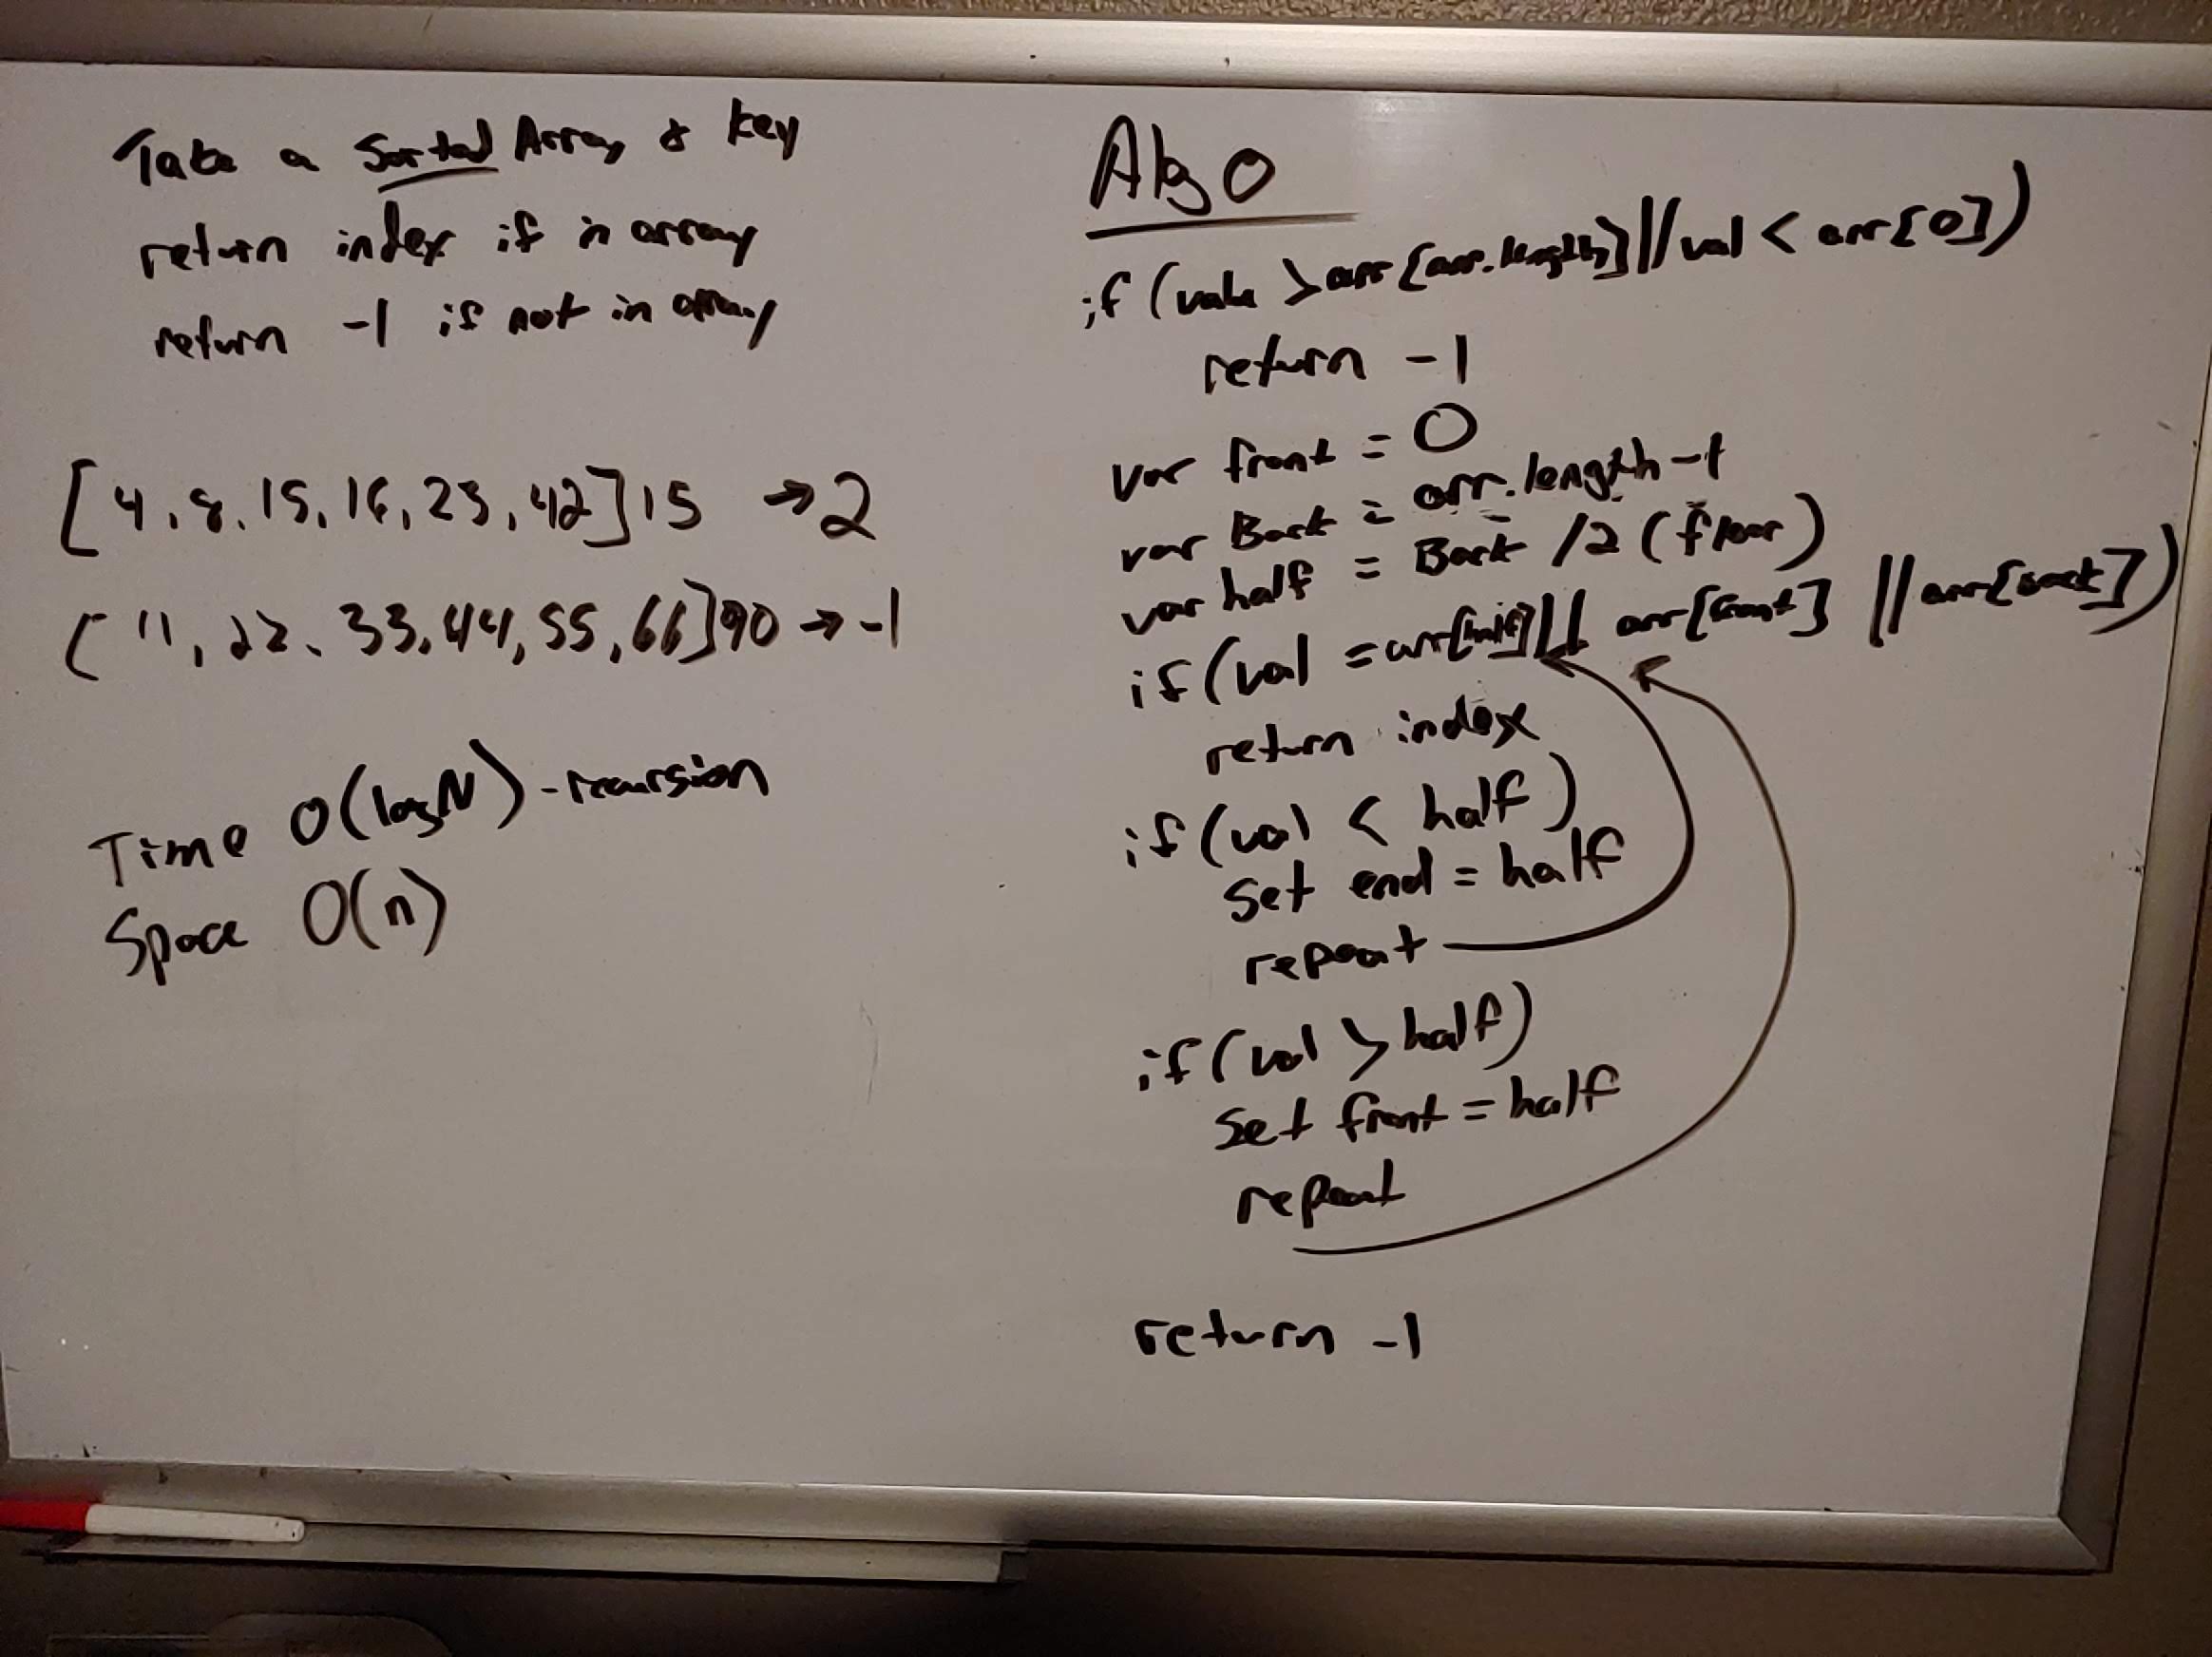 Take a Sorted Array & key
return index if in array
return -1 if not in array
[4, 8, 15, 16, 23, 42] 15 → 2
[11, 22, 33, 44, 55, 66] 90 → -1
Time O(logN) - recursion
Space O(n)
Algo
if (value > arr[arr.length] || val < arr[0])
return -1
var front = 0
var Back = arr.length -1
var half = Back /2 (floor)
if (val = arr[half] || arr[front] || arr[back])
return index
if (val < half)
set end = half
repeat
if (val > half)
set front = half
repeat
return -1